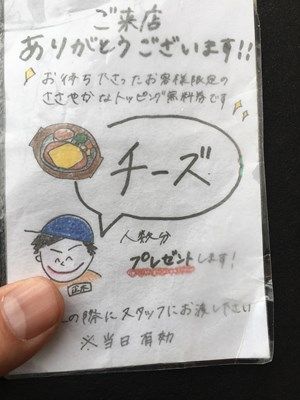 ご来店
ありがとうございます!!
お待ち下さったお客様限定の
ささやかなトッピング無料券です
チーズ
人数分
プレゼントします!
の際にスタッフにお渡し下さい
※当日有効